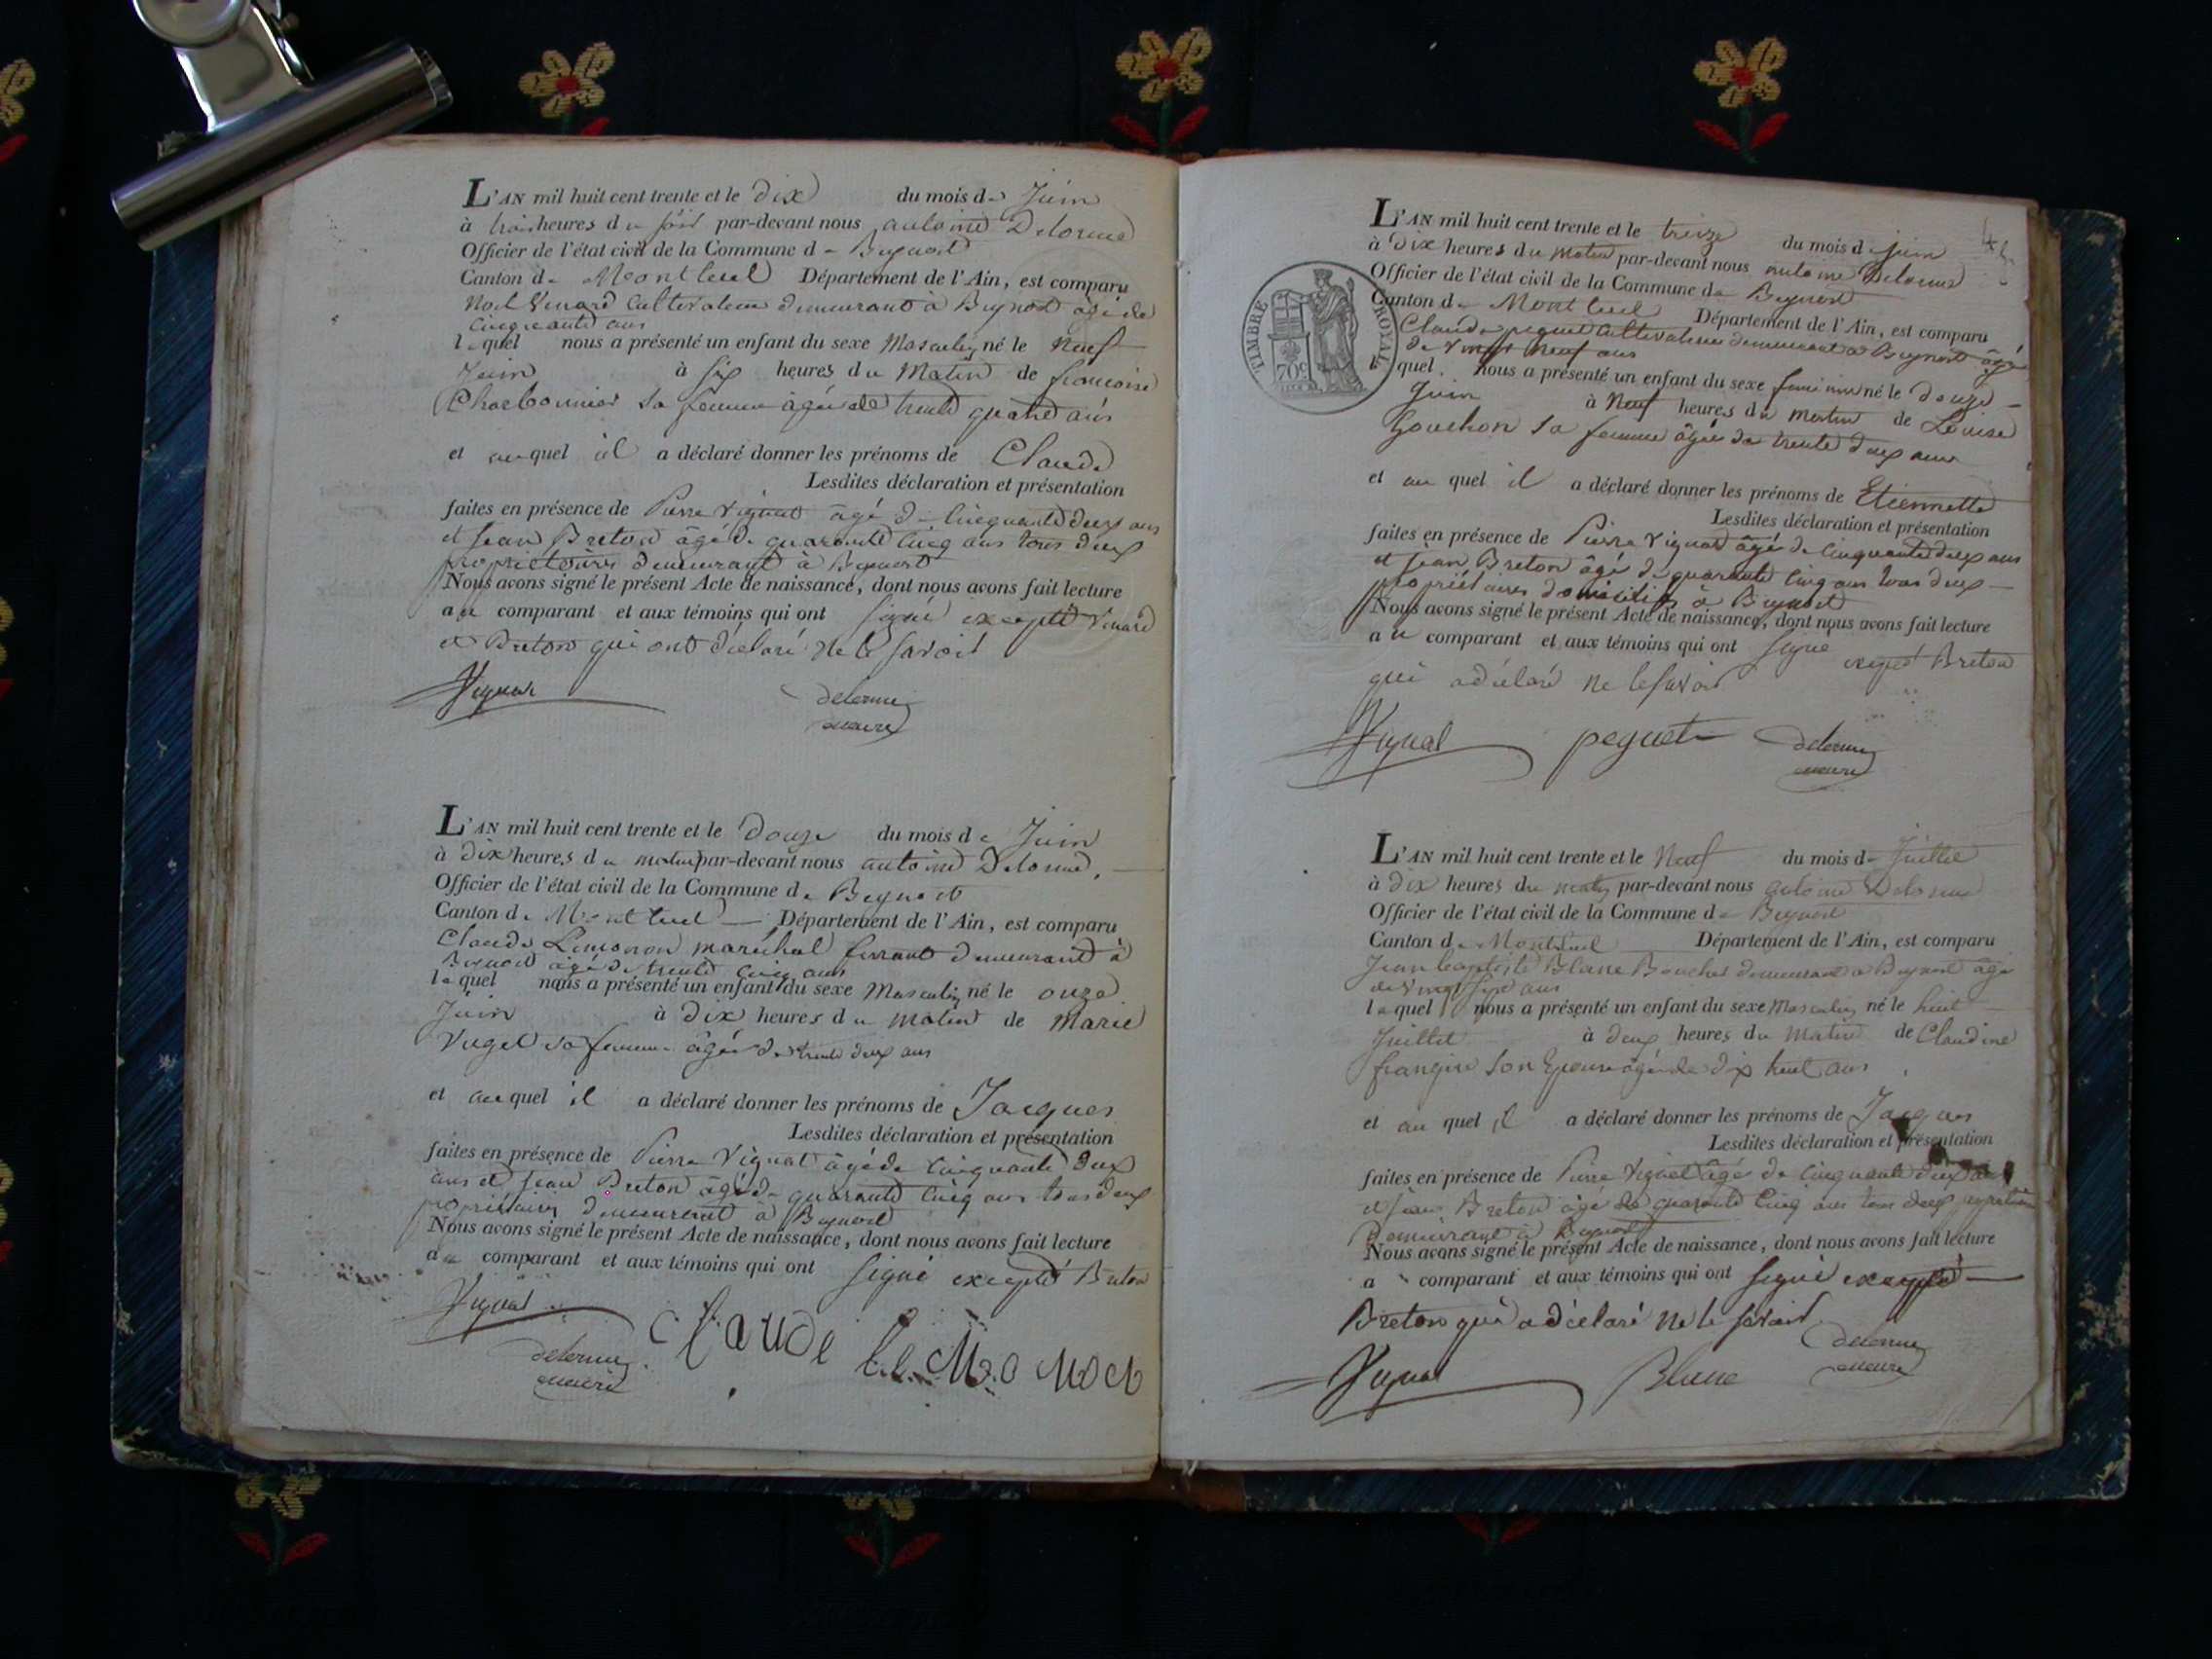 L'AN mil huit cent trente et le dix du mois de Juin
à trois heures du soir par-devant nous antoine Delorme
Officier de l'état civil de la Commune de Beynost
Canton de Montluel Département de l'Ain, est comparu
Noel Venard Cultivateur demeurant à Beynost âgé de
Cinquante ans
lequel nous a présenté un enfant du sexe Masculin né le Neuf
Juin à six heures du Matin de francoise
Charbonnier sa femme âgée de trente quatre ans
et auquel il a déclaré donner les prénoms de Claude
Lesdites déclaration et présentation
faites en présence de Pierre Vignat âgé de Cinquante deux ans
et jean Breton âgé de quarante Cinq ans tous deux
proprietaires demeurant à Beynost
Nous avons signé le présent Acte de naissance, dont nous avons fait lecture
au comparant et aux témoins qui ont signé excepté Venard
et Breton qui ont déclaré Ne le savoir
Vignat delorme
maire
L'AN mil huit cent trente et le Douze du mois de Juin
à Dix heures du matin par-devant nous antoine Delorme.
Officier de l'état civil de la Commune de Beynost
Canton de Montluel Département de l'Ain, est comparu
Claude maréchal ferrant demeurant à
Beynost âgé de trente cinq ans
lequel nous a présenté un enfant du sexe Masculin né le onze
Juin à Dix heures du matin de Marie
Vugel sa femme âgée de trente deux ans
et auquel il a déclaré donner les prénoms de Jacques
Lesdites déclaration et présentation
faites en présence de Pierre Vignat âgé de Cinquante deux
ans et jean Breton âgé de quarante Cinq ans tous deux
propriétaires demeurant à Beynost
Nous avons signé le présent Acte de naissance, dont nous avons fait lecture
au comparant et aux témoins qui ont signé excepté Breton
Vignat Claude
delorme
maire
L'AN mil huit cent trente et le treize du mois de juin
à Dix heures du matin par-devant nous antoine Delorme
Officier de l'état civil de la Commune de Beynost
Canton de Montluel Département de l'Ain, est comparu
Claude peguet Cultivateur demeurant à Beynost âgé
de vingt Neuf ans
lequel nous a présenté un enfant du sexe feminin né le douze
Juin à Neuf heures du matin de Louise
Gouchon sa femme âgée de trente deux ans
et au quel il a déclaré donner les prénoms de Etiennette
Lesdites déclaration et présentation
faites en présence de Pierre Vignat âgé de Cinquante deux ans
et jean Breton âgé de quarante Cinq ans tous deux
propriétaires domiciliés à Beynost
Nous avons signé le présent Acte de naissance, dont nous avons fait lecture
au comparant et aux témoins qui ont signé excepté Breton
qui a déclaré ne le savoir
Vignat peguet delorme
maire
TIMBRE ROYAL
70c
L'AN mil huit cent trente et le Neuf du mois de Juillet
à dix heures du matin par-devant nous antoine Delorme
Officier de l'état civil de la Commune de Beynost
Canton de Montluel Département de l'Ain, est comparu
Jean baptiste Blanc Boucher demeurant à Beynost âgé
de vingt sept ans
lequel nous a présenté un enfant du sexe Masculin né le huit
Juillet à deux heures du Matin de Claudine
frangire son Epouse âgée de dix huit ans
et au quel il a déclaré donner les prénoms de Jacques
Lesdites déclaration et présentation
faites en présence de Pierre Vignat âgé de Cinquante deux ans
et jean Breton âgé de quarante Cinq ans tous deux
Demeurant à Beynost
Nous avons signé le présent Acte de naissance, dont nous avons fait lecture
a comparant et aux témoins qui ont signé excepté
Breton qui a déclaré Ne le savoir
Vignat Blanc delorme
maire